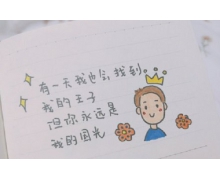 有一天我也会找到
我的王子
但你永远是
我的国光